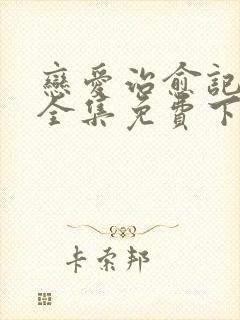 戀愛治愈記
全集免費下
卡索邦